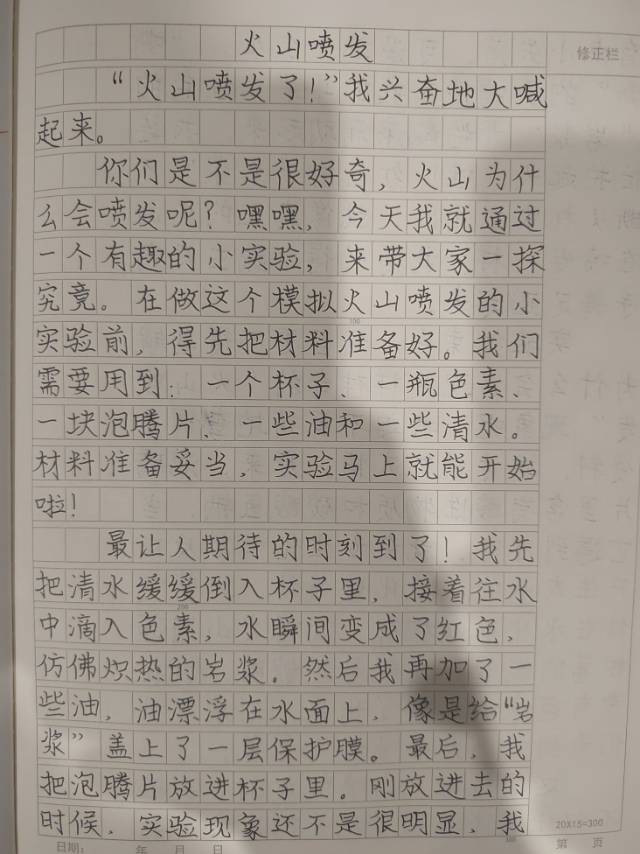 火山喷发
修正栏
“火山喷发了！”我兴奋地大喊
起来。
你们是不是很好奇，火山为什
么会喷发呢？嘿嘿，今天我就通过
一个有趣的小实验，来带大家一探
究竟。在做这个模拟火山喷发的小
实验前，得先把材料准备好。我们
需要用到：一个杯子、一瓶色素、
一块泡腾片、一些油和一些清水。
材料准备妥当，实验马上就能开始
啦！
最让人期待的时刻到了！我先
把清水缓缓倒入杯子里，接着往水
中滴入色素，水瞬间变成了红色，
仿佛炽热的岩浆。然后我再加了一
些油，油漂浮在水面上，像是给“岩
浆”盖上了一层保护膜。最后，我
把泡腾片放进杯子里。刚放进去的
时候，实验现象还不是很明显，我
20X15=300
日期： 年 月 日 第 页